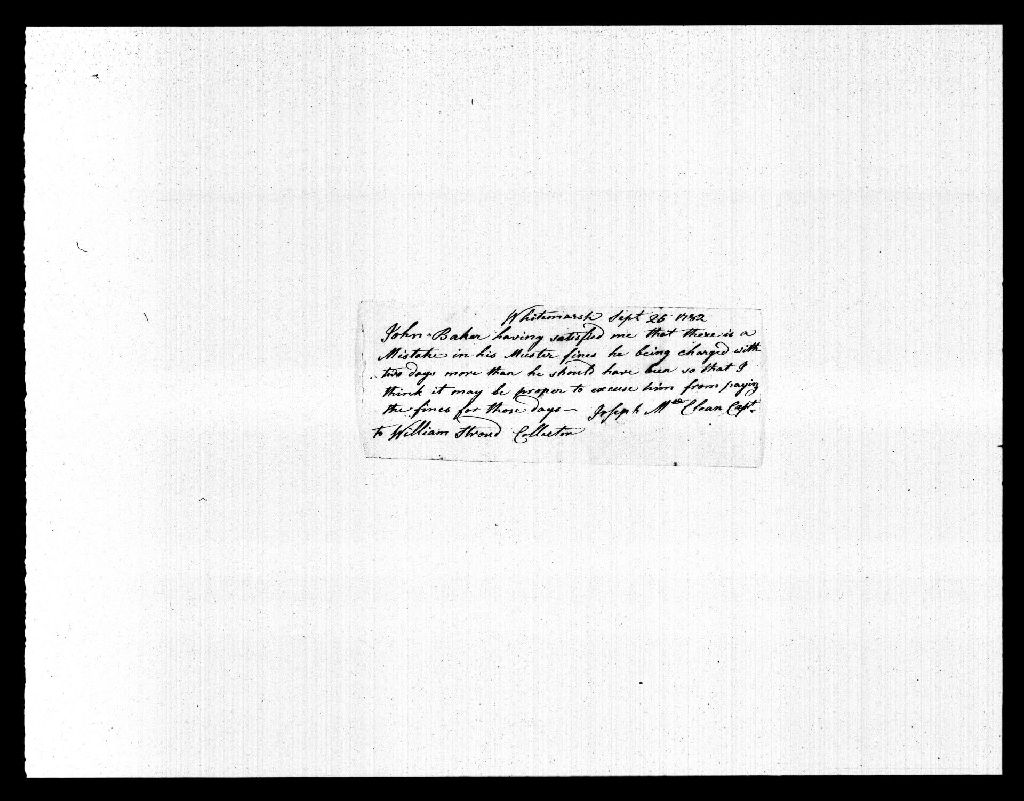 Whitemarsh Sept 26 1782
John Baker having satisfied me that there is a
Mistake in his Muster fines he being charged with
two days more than he should have been so that I
think it may be proper to excuse him from paying
the fines for those days — Joseph Mc Clean Capt.
to William Stroud Collector